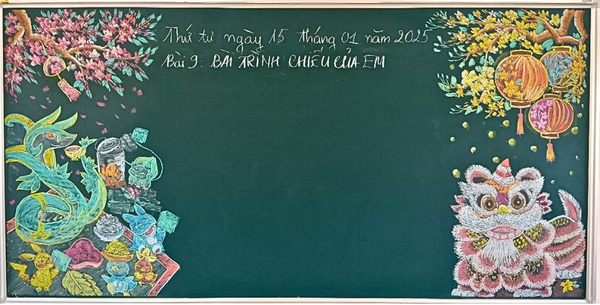 Thứ tư ngày 15 tháng 01 năm 2025
Bài 9: BÀI TRÌNH CHIẾU CỦA EM